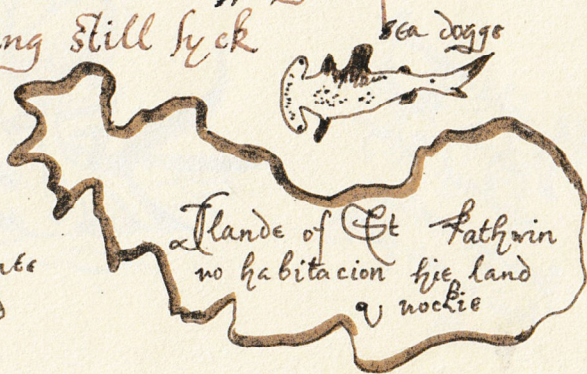 ng still syck
sea dogge
Ilande of St Kathrin
no habitacion hie land
& rockie